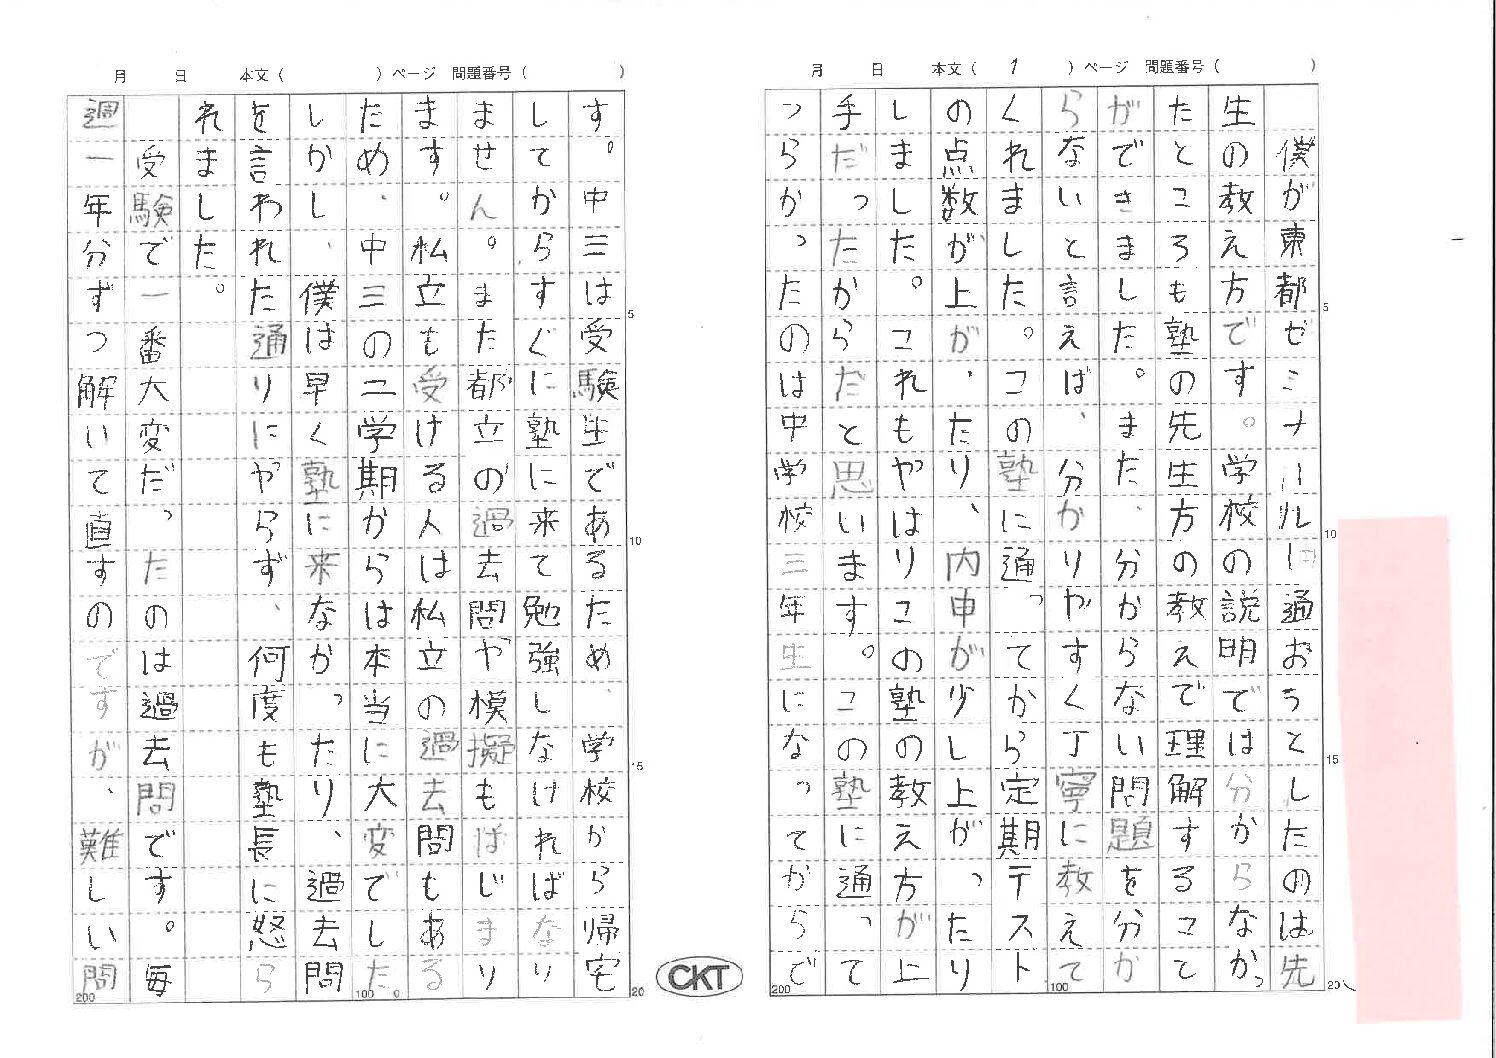 月 日 本文（ 1 ）ページ 問題番号（ ）
僕が東都ゼミナールに通おうとしたのは先
生の教え方です。学校の説明では分からなかっ
たところも塾の先生方の教えで理解すること
ができました。また、分からない問題を分か
らないと言えば、分かりやすく丁寧に教えて
くれました。この塾に通ってから定期テスト
の点数が上がったり、内申が少し上がったり
しました。これもやはりこの塾の教え方が上
手だったからだと思います。この塾に通って
つらかったのは中学校三年生になってからで
5
10
15
20
100
200
CKT
月 日 本文（ ）ページ 問題番号（ ）
す。中三は受験生であるため、学校から帰宅
してからすぐに塾に来て勉強しなければなり
ません。また都立の過去問や模擬もはじまり
ます。私立も受ける人は私立の過去問もある
ため、中三の二学期からは本当に大変でした。
しかし、僕は早く塾に来なかったり、過去問
を言われた通りにやらず、何度も塾長に怒ら
れました。
受験で一番大変だったのは過去問です。毎
週一年分ずつ解いて直すのですが、難しい問
5
10
15
20
100
200